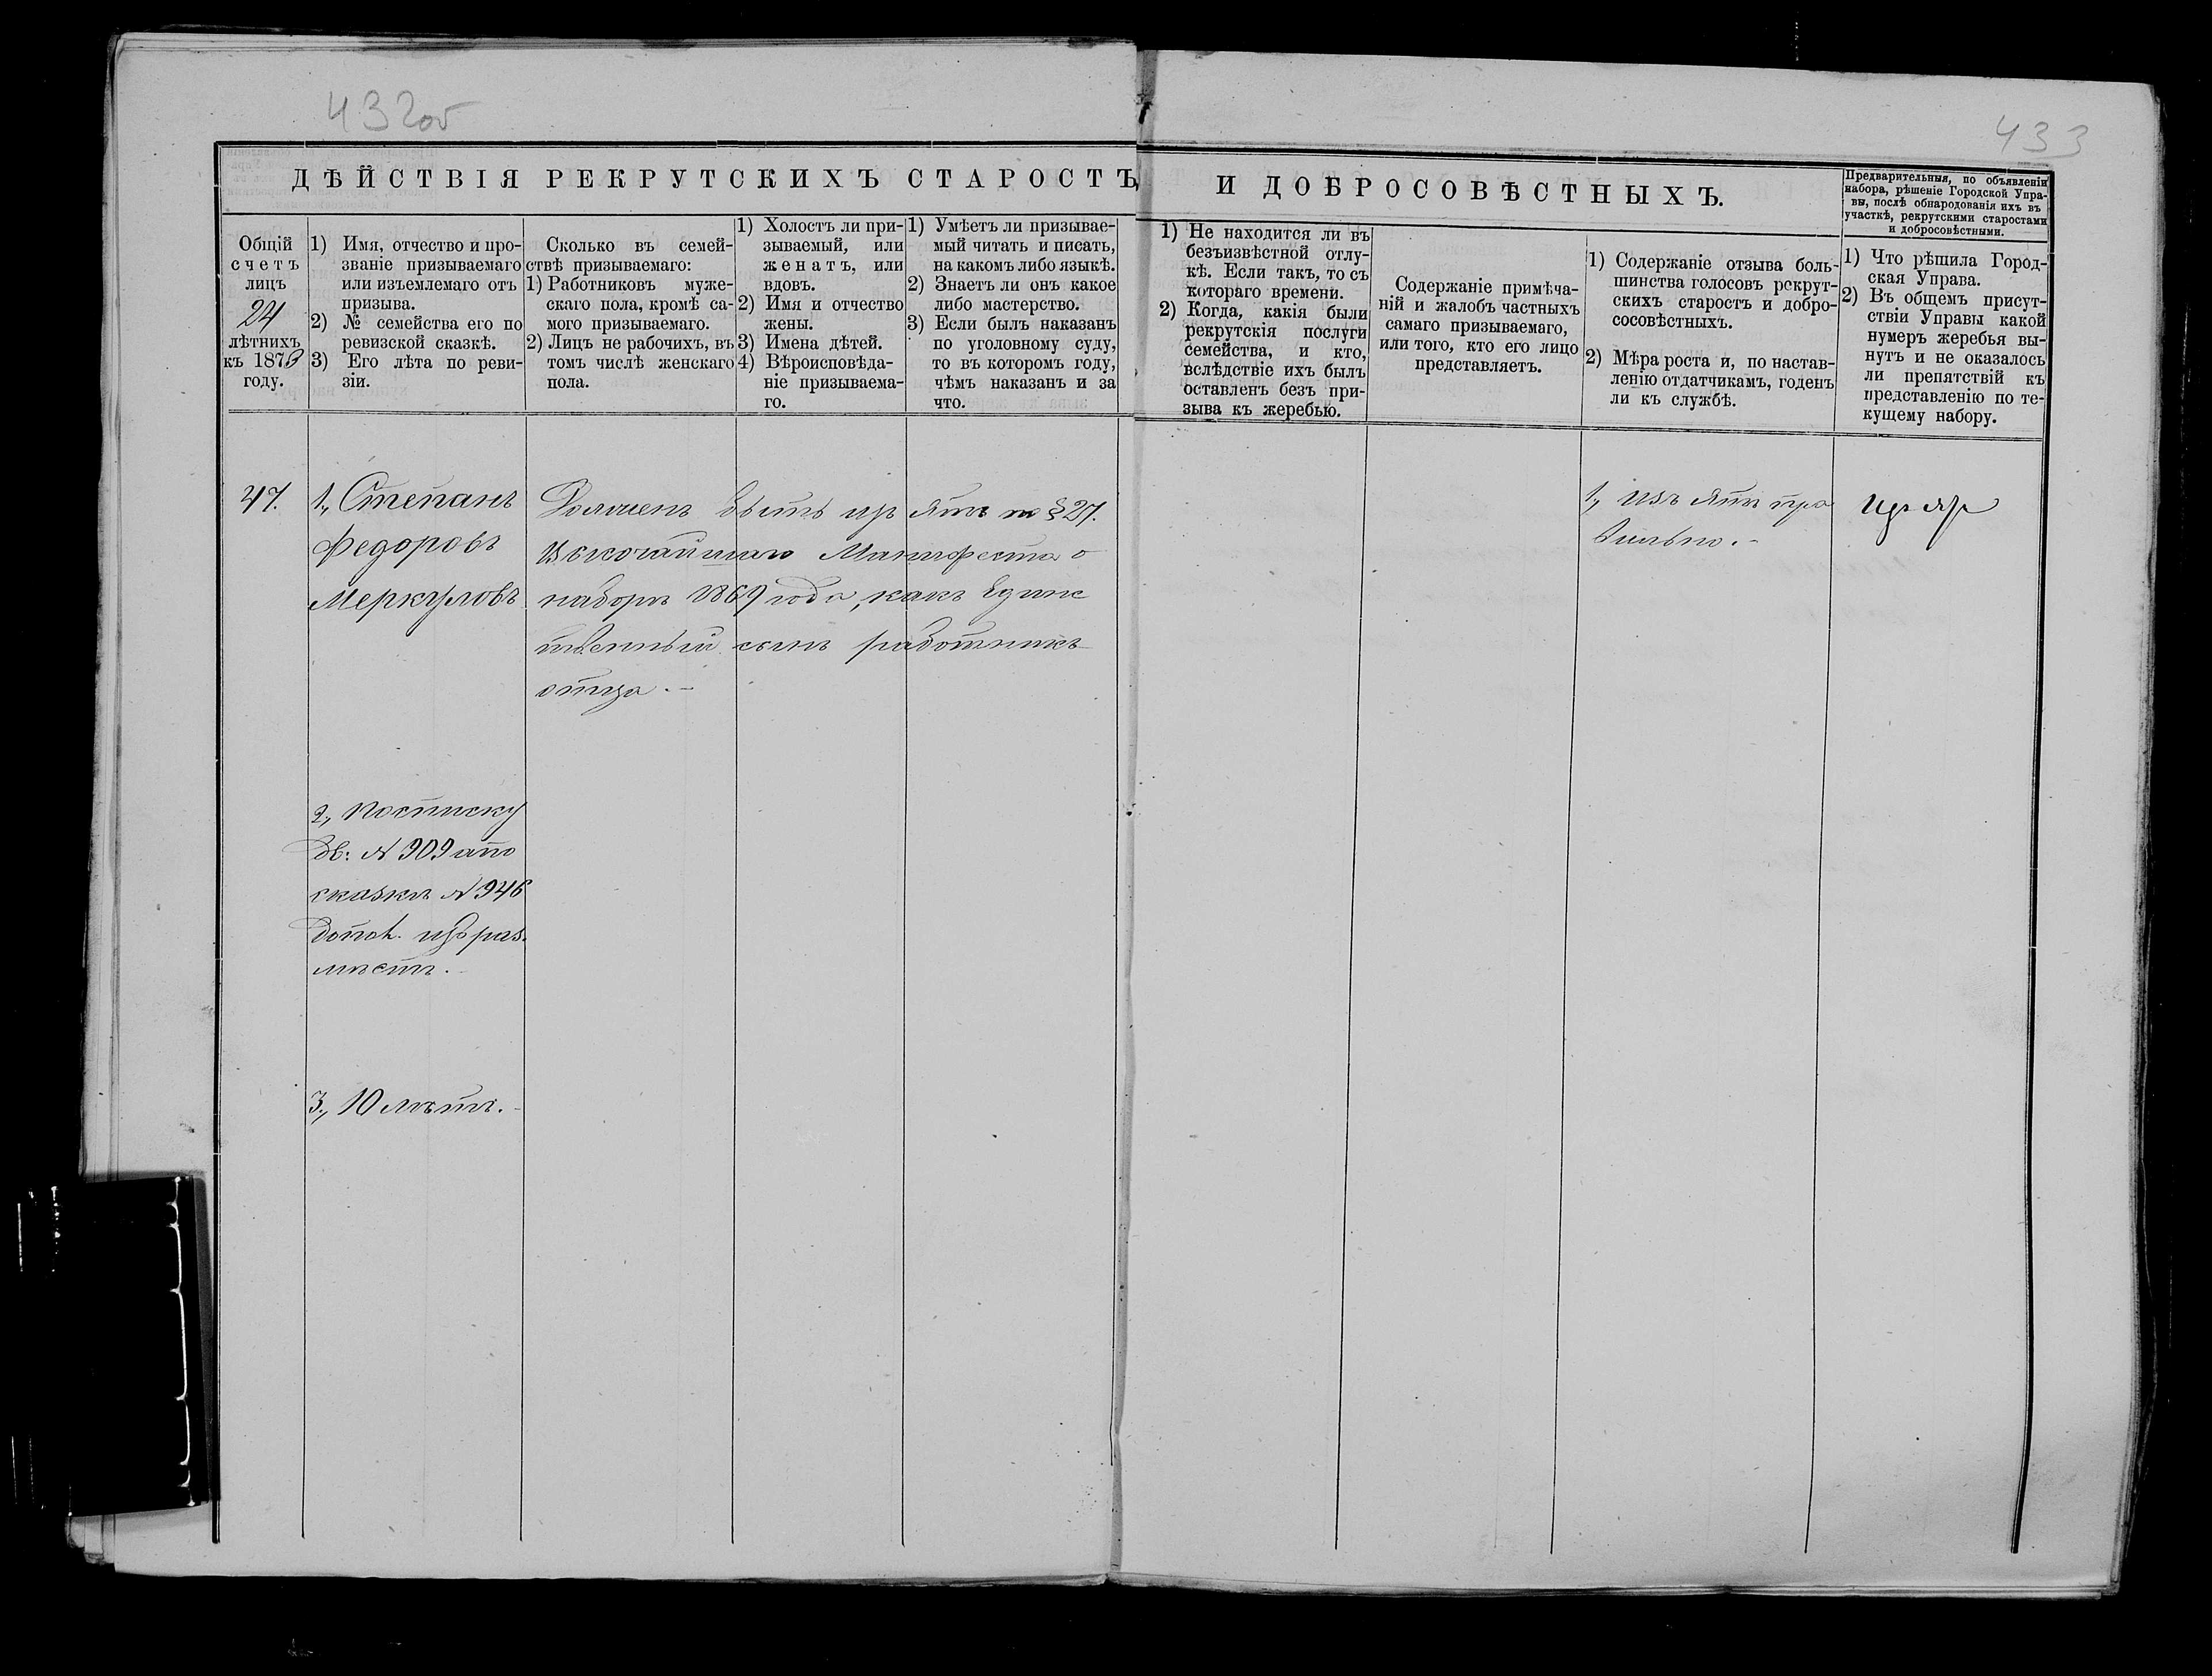 432об
433
ДѢЙСТВІЯ РЕКРУТСКИХЪ СТАРОСТЪ
И ДОБРОСОВѢСТНЫХЪ.
Общій
счетъ
лицъ
24
лѣтнихъ
къ 1873
году.
1) Имя, отчество и про-
званіе призываемаго
или изъемлемаго отъ
призыва.
2) № семейства его по
ревизской сказкѣ.
3) Его лѣта по реви-
зіи.
Сколько въ семей-
ствѣ призываемаго:
1) Работниковъ муже-
скаго пола, кромѣ са-
мого призываемаго.
2) Лицъ не рабочихъ, въ
томъ числѣ женскаго
пола.
1) Холостъ ли при-
зываемый, или
женатъ, или
вдовъ.
2) Имя и отчество
жены.
3) Имена дѣтей.
4) Вѣроисповѣда-
ніе призываема-
го.
1) Умѣетъ ли призывае-
мый читать и писать,
на какомъ либо языкѣ.
2) Знаетъ ли онъ какое
либо мастерство.
3) Если былъ наказанъ
по уголовному суду,
то въ которомъ году,
чѣмъ наказанъ и за
что.
1) Не находится ли въ
безъизвѣстной отлу-
кѣ. Если такъ, то съ
котораго времени.
2) Когда, какія были
рекрутскія послуги
семейства, и кто,
вслѣдствіе ихъ былъ
оставленъ безъ при-
зыва къ жеребью.
Содержаніе примѣча-
ній и жалобъ частныхъ
самаго призываемаго,
или того, кто его лицо
представляетъ.
1) Содержаніе отзыва боль-
шинства голосовъ рекрут-
скихъ старостъ и добро-
сосовѣстныхъ.
2) Мѣра роста и, по настав-
ленію отдатчикамъ, годенъ
ли къ службѣ.
Предварительныя, по объявленіи
набора, рѣшеніе Городской Упра-
вы, послѣ обнародованія ихъ въ
участкѣ, рекрутскими старостами
и добросовѣстными.
1) Что рѣшила Город-
ская Управа.
2) Въ общемъ присут-
ствіи Управы какой
нумеръ жеребья вы-
нутъ и не оказалось
ли препятствій къ
представленію по те-
кущему набору.
47.
1., Степанъ
Федоровъ
Меркуловъ
2., Посписку
Дв: N 909 апо
сказкѣ N 946
допол. изъ раз.
мѣстъ.
3., 10 лѣтъ.
Долженъ быть изъятъ по § 27.
Высочайшаго Манифеста о
наборѣ 1869 года, какъ Единс
твенный сынъ работникъ
отца.
1., Изъятъ пра
вильно.